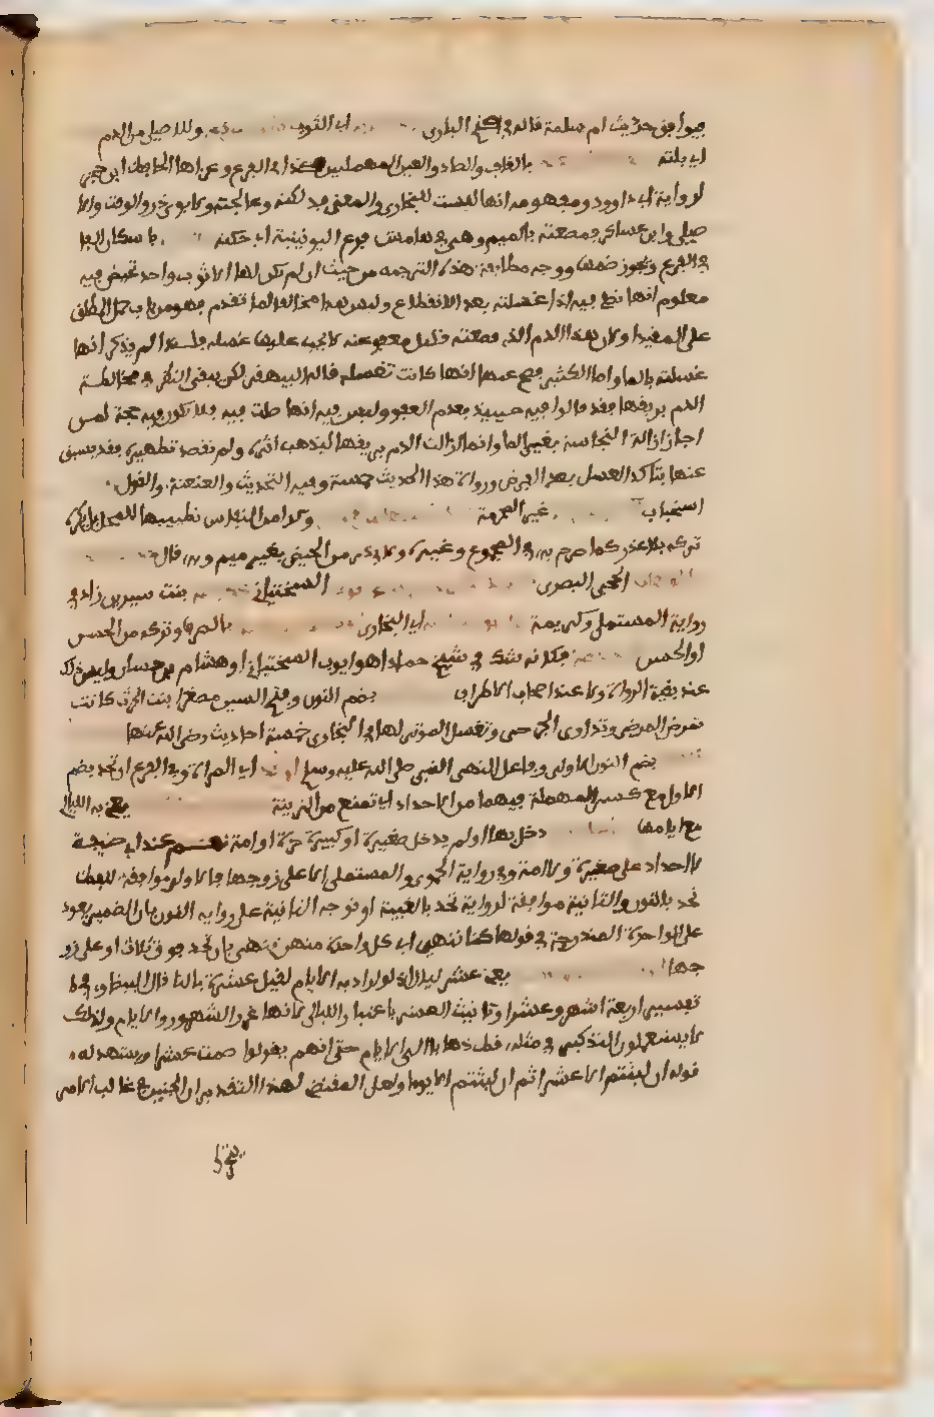 فيوافق حديث ام سلمة قاله في فتح الباري اي الثوب وللاصيلي من الدم
اي بلته بالقاف والصاد والعين المهملتين كذا في الفرع وعزاها الحافظ ابن حجر
لرواية ابي داوود ومفهومه انها ليست للبخاري والمعنى فدلكته وعالجته ولابوي ذر والوقت والا
صيلي وابن عساكر فمصعته بالميم وهي في هامش فرع اليونينية اي حكته باسكان الفا
في الفرع ويجوز ضمها ووجه مطابقة هذه الترجمة من حيث ان لم يكن لها الا ثوب واحد تحيض فيه
معلوم انها تصلي فيه اذا غسلته بعد الانقطاع وليس هذا مخالفا لما تقدم فهو من باب حمل المطلق
على المقيد او لان هذا الدم الذي مصعته قليل معفو عنه لا يجب عليها غسله فلهذا لم يذكر انها
غسلته بالماء واما الكثير فصح عنها انها كانت تغسله قاله البيهقي لكن يبقى النظر في مخالطة
الدم بريقها فقد قالوا فيه حينئذ بعدم العفو وليس فيه انها صلت فيه فلا يكون فيه حجة لمن
اجاز ازالة النجاسة بغير الماء وانما ازالت الدم بريقها ليذهب اثره ولم تقصد تطهيره فقد سبق
عنها ورواة هذا الحديث خمسة وفيه التحديث والعنعنة والقول
استحباب غير المحرمة للمحل بل يكره
تركه بلا عذر كما صرح به في المجموع وغيره ولابي ذر من الحيض بغير ميم وبه قال
الحجبي البصري السختياني بنت سيرين زاد في
رواية المستملي وكريمة اي البخاري بالصرف وتركه من الحسن
او الحس فكانه شك في شيخ حماد اهو ايوب السختياني او هشام بن حسان وليس ذلك
عند بقية الرواة ولا عند اصحاب الاطراف بضم النون وفتح السين مصغرا بنت الحرث كانت
تمرض المرضى وتداوي الجرحى وتغسل الموتى لها في البخاري خمسة احاديث رضي الله عنها
بضم النون الاولى وفاعل النهي النبي صلى الله عليه وسلم اي المراة وفي الفرع ان تحد بضم
الاول مع كسر المهملة فيهما من الاحداد اي تمنع من الزينة يعني به الليالي
مع ايامها دخل بها او لم يدخل صغيرة او كبيرة حرة او امة نعم عند ابي حنيفة
لا احداد على صغيرة ولا امة وفي رواية الحموي والمستملي الا على زوجها فالاولى موافقة للفظ
نحد بالنون والثانية موافقة لرواية تحد بالغيبة او توجه الثانية على رواية النون بان الضمير يعود
على الواحدة المندرجة في قولها كنا ننهى اي كل واحدة منهن تنهى ان تحد فوق ثلاث او على زو
جها يعني عشر ليال اذ لو اراد به الايام لقيل عشرة بالتا قال البيضاوي في
تفسير اربعة اشهر وعشرا وتانيث العشر باعتبار الليالي لانها غرر الشهور والايام ولذلك
لا يستعملون التذكير في مثله قط ذهابا الى الايام حتى انهم يقولوا صمت عشرا ويشهد له
قوله ان لبثتم الا عشرا ثم ان لبثتم الا يوما ولعل المقتضي لهذا التقدير ان الجنين في غالب الامر